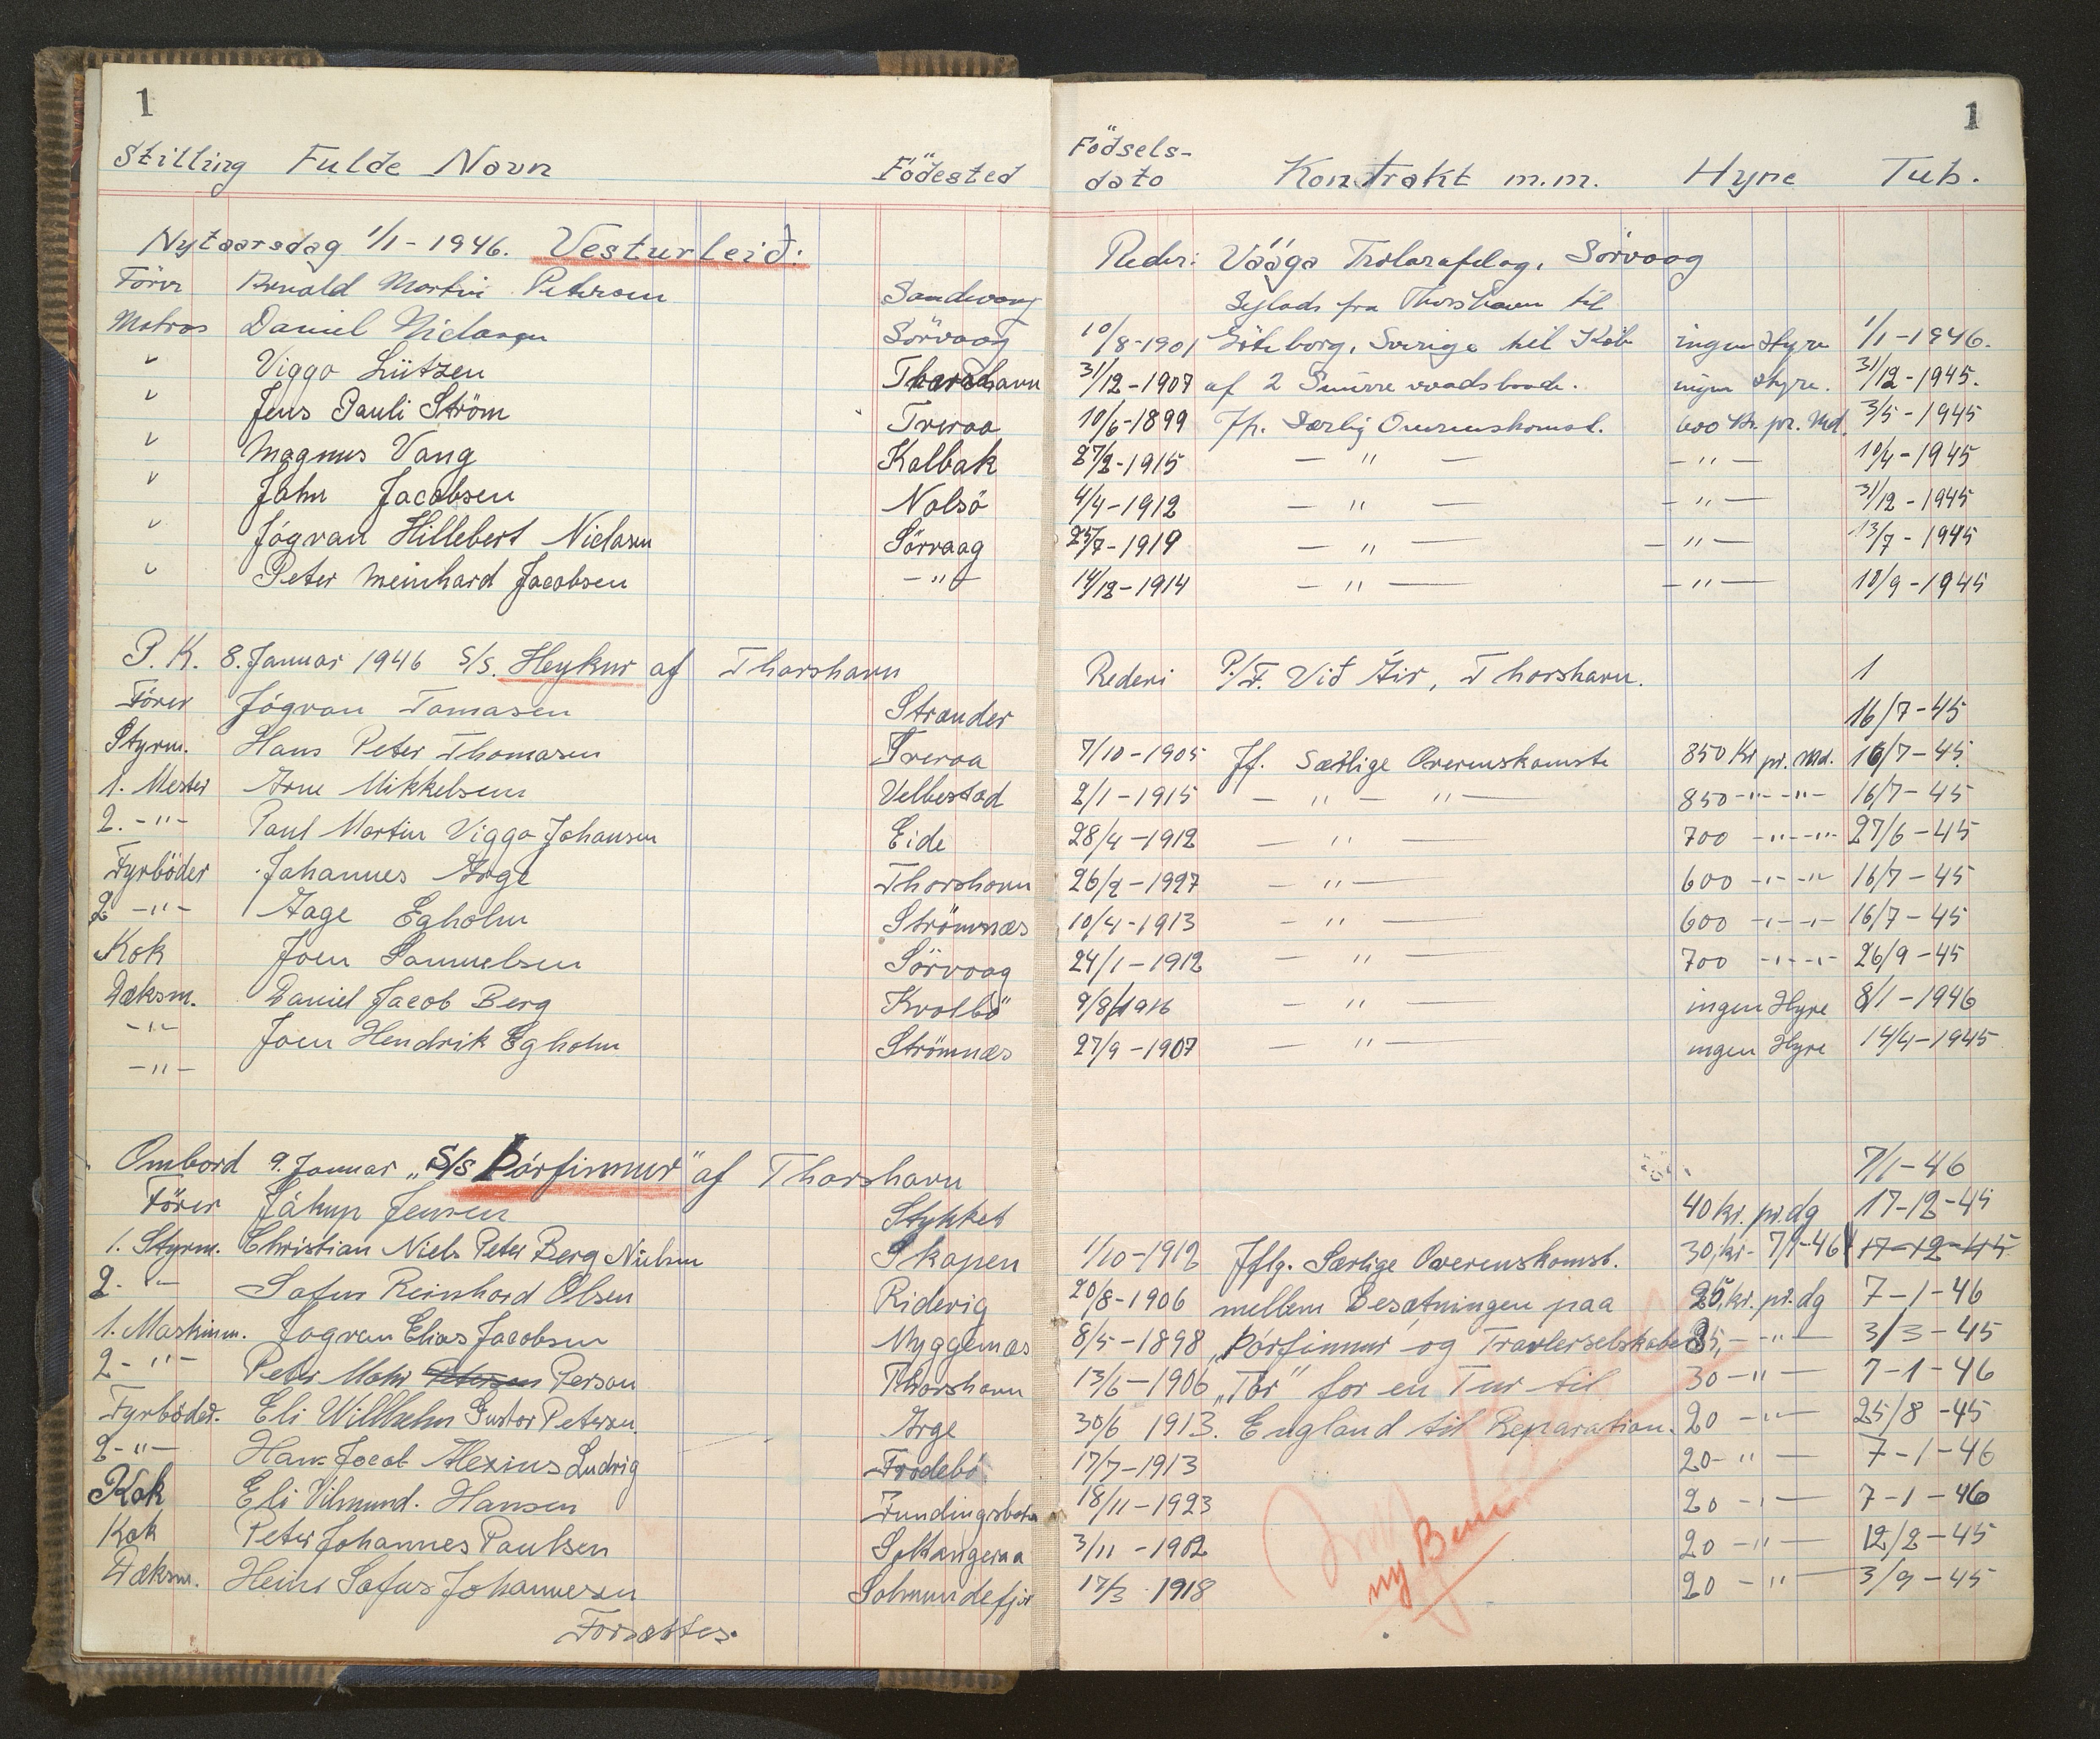 1 1
Stilling Fulde Navn Födested Födsels-
dato Kontrakt m.m. Hyre Tub.
Nytaarsdag 1/1-1946. Vesturleið: Reder: Váága Trolarafelag, Sörvaag
Förer Martin Petersen Sandvaag Sejlads fra Thorshavn til
Matros Daniel Niclasen Sörvaag 10/8-1901 Göteborg, Sverige til Köb ingen Hyre 1/1-1946.
" Viggo Lützen Thorshavn 31/12-1907 af 2 Snurrevaadsbaade. ingen Hyre. 31/12-1945.
" Jens Pauli Ström Tveraa 10/6-1899 Jf. Særlig Overenskomst. 600 Kr. pr. Md. 3/5-1945
" Magnus Vang Kalbak 27/2-1915 — " — — " — 10/4-1945
" John Jacobsen Nolsö 4/4-1912 — " — — " — 31/12-1945
" Jógvan Hillebert Niclasen Sörvaag 25/7-1919 — " — — " — 13/7-1945
" Peter Meinhard Jacobsen — " — 14/12-1914 — " — — " — 10/9-1945
P. K. 8. Januar 1946 S/S. Heykur af Thorshavn Rederi P/F. Við Áir, Thorshavn. 1
Förer Jógvan Tomasen Strander 16/7-45
Styrm. Hans Peter Thomasen Tveraa 7/10-1905 Jf. Særlige Overenskomste 850 Kr pr. Md. 16/7-45
1. Mester Arne Mikkelsen Velbestad 2/1-1915 — " — " — 850 -"- -"- 16/7-45
2. -"- Paul Martin Viggo Johansen Eide 28/4-1912 — " — 700 -"- -"- 27/6-45
Fyrböder Johannes Arge Thorshavn 26/2-1927 — " — 600 -"- -"- 16/7-45
2 -"- Aage Egholm Strömnæs 10/4-1913 — " — 600 -"- -"- 16/7-45
Kok Joen Samuelsen Sörvaag 24/1-1912 — " — 700 -"- -"- 26/9-45
Dæksm. Daniel Jacob Berg Kvalbö 9/8/1916 — " — ingen Hyre 8/1-1946
-"- Joen Hendrik Egholm Strömnæs 27/9-1907 — " — ingen Hyre 14/4-1945
-"-
Ombord 9. Januar „S/S Þórfinnur" af Thorshavn 7/1-46
Förer Jákup Jensen Stykket 40 kr. pr. dg 17-12-45
1. Styrm. Christian Niels Peter Berg Nielsen Skopen 1/10-1912 Jflg. Særlige Overenskomst. 30, kr- 7/1-46 17-12-45
2- "- Sofus Reinhard Olsen Ridevig 20/8-1906 mellem Besætningen paa 25, kr. pr. dg 7-1-46
1. Maskinm. Jogvan Elias Jacobsen Myggenæs 8/5-1898 „Þórfinnur og Travlerselskabet 35, - " — 3/3-45
2- "- Peter Mohr Petersen Person Thorshavn 13/6-1906 „Tór" for en Tur til 30 - " — 7-1-46
Fyrböder. Eli Willhelm Gustav Petersen. Arge 30/6 1913. England til Reparation. 20 - " — 25/8-45
2- "- Hans Jocob Alexius Ludvig Frodebö 17/7-1913 20- " — 7-1-46
Kok Eli Vilmund. Hansen Fundingsbotn 18/11-1923 20 - " — 7-1-46
Kok Peter Johannes Paulsen Saltangeraa 3/11-1902 20 - " — 12/2-45
Dæksm. Heini Sofus Johannesen Solmundefjör 17/3 1918 ny 20 - " — 3/9-45
Forsættes.